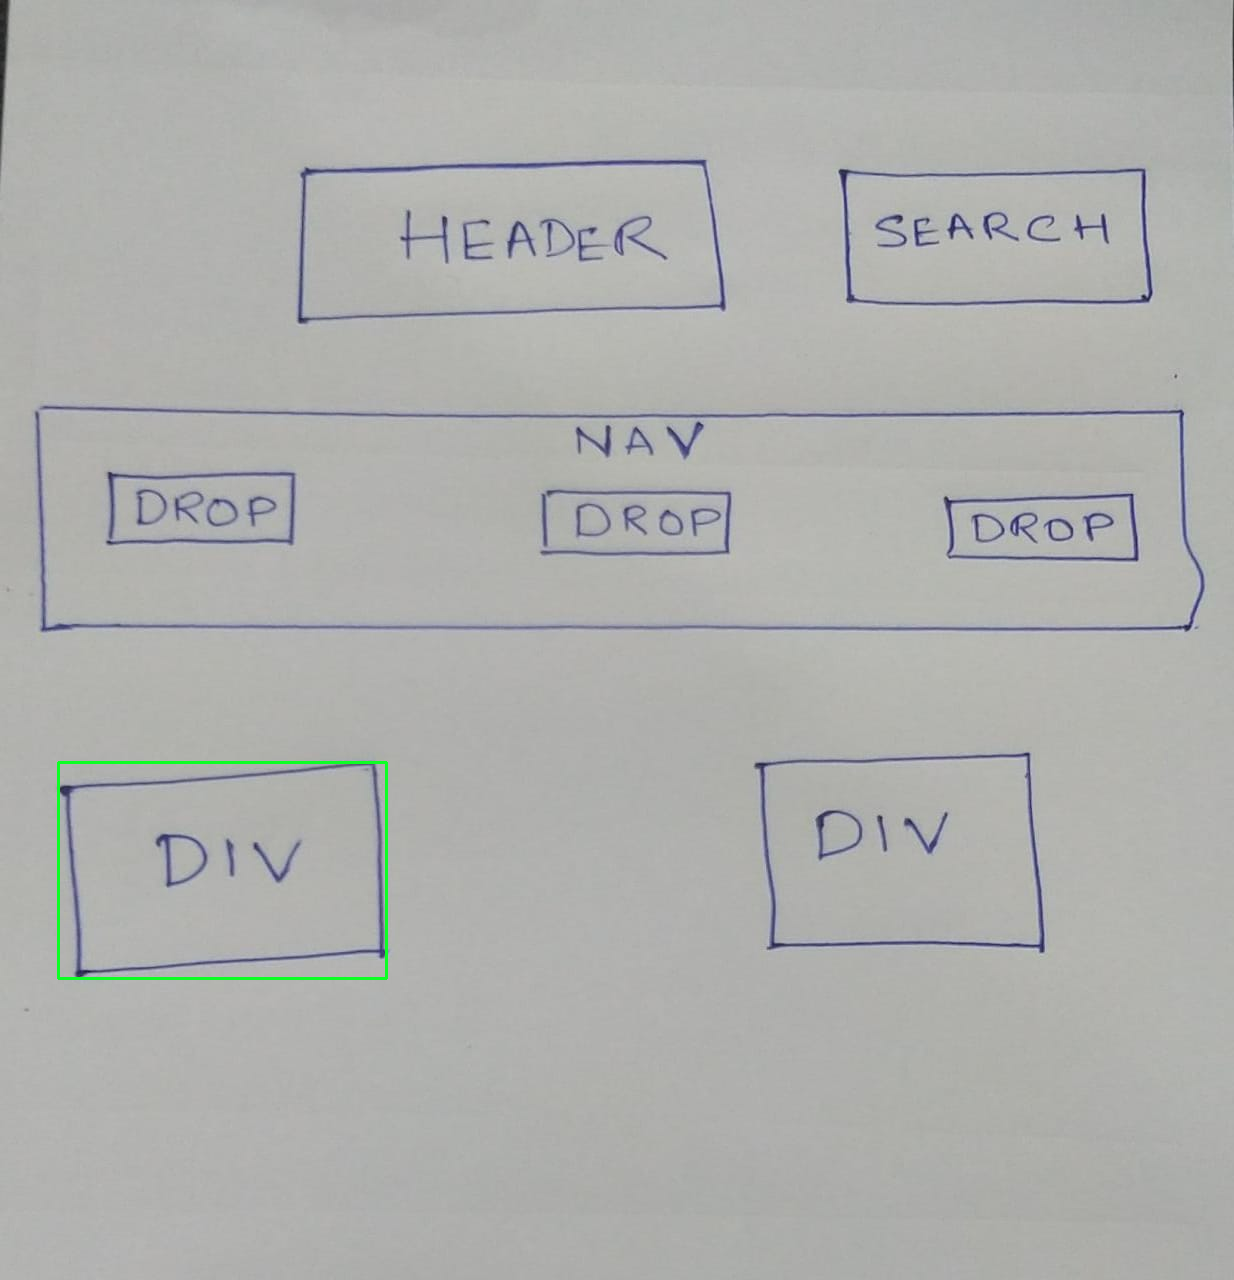 HEADER SEARCH
NAV
DROP DROP DROP
DIV DIV